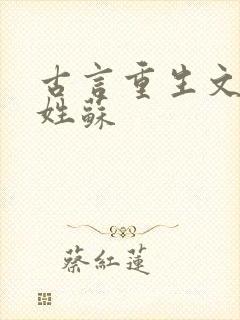 古言重生文
姓蘇
蔡紅蓮